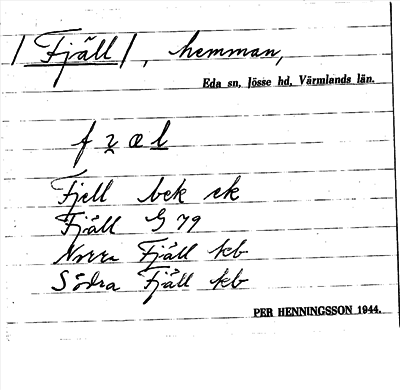 /Fjäll/, hemman,
Eda sn, Jösse hd, Värmlands län.
f z æ l
Fjell bek ek
Fjäll G 79
Norra Fjäll kb
Södra Fjäll kb
PER HENNINGSSON 1944.